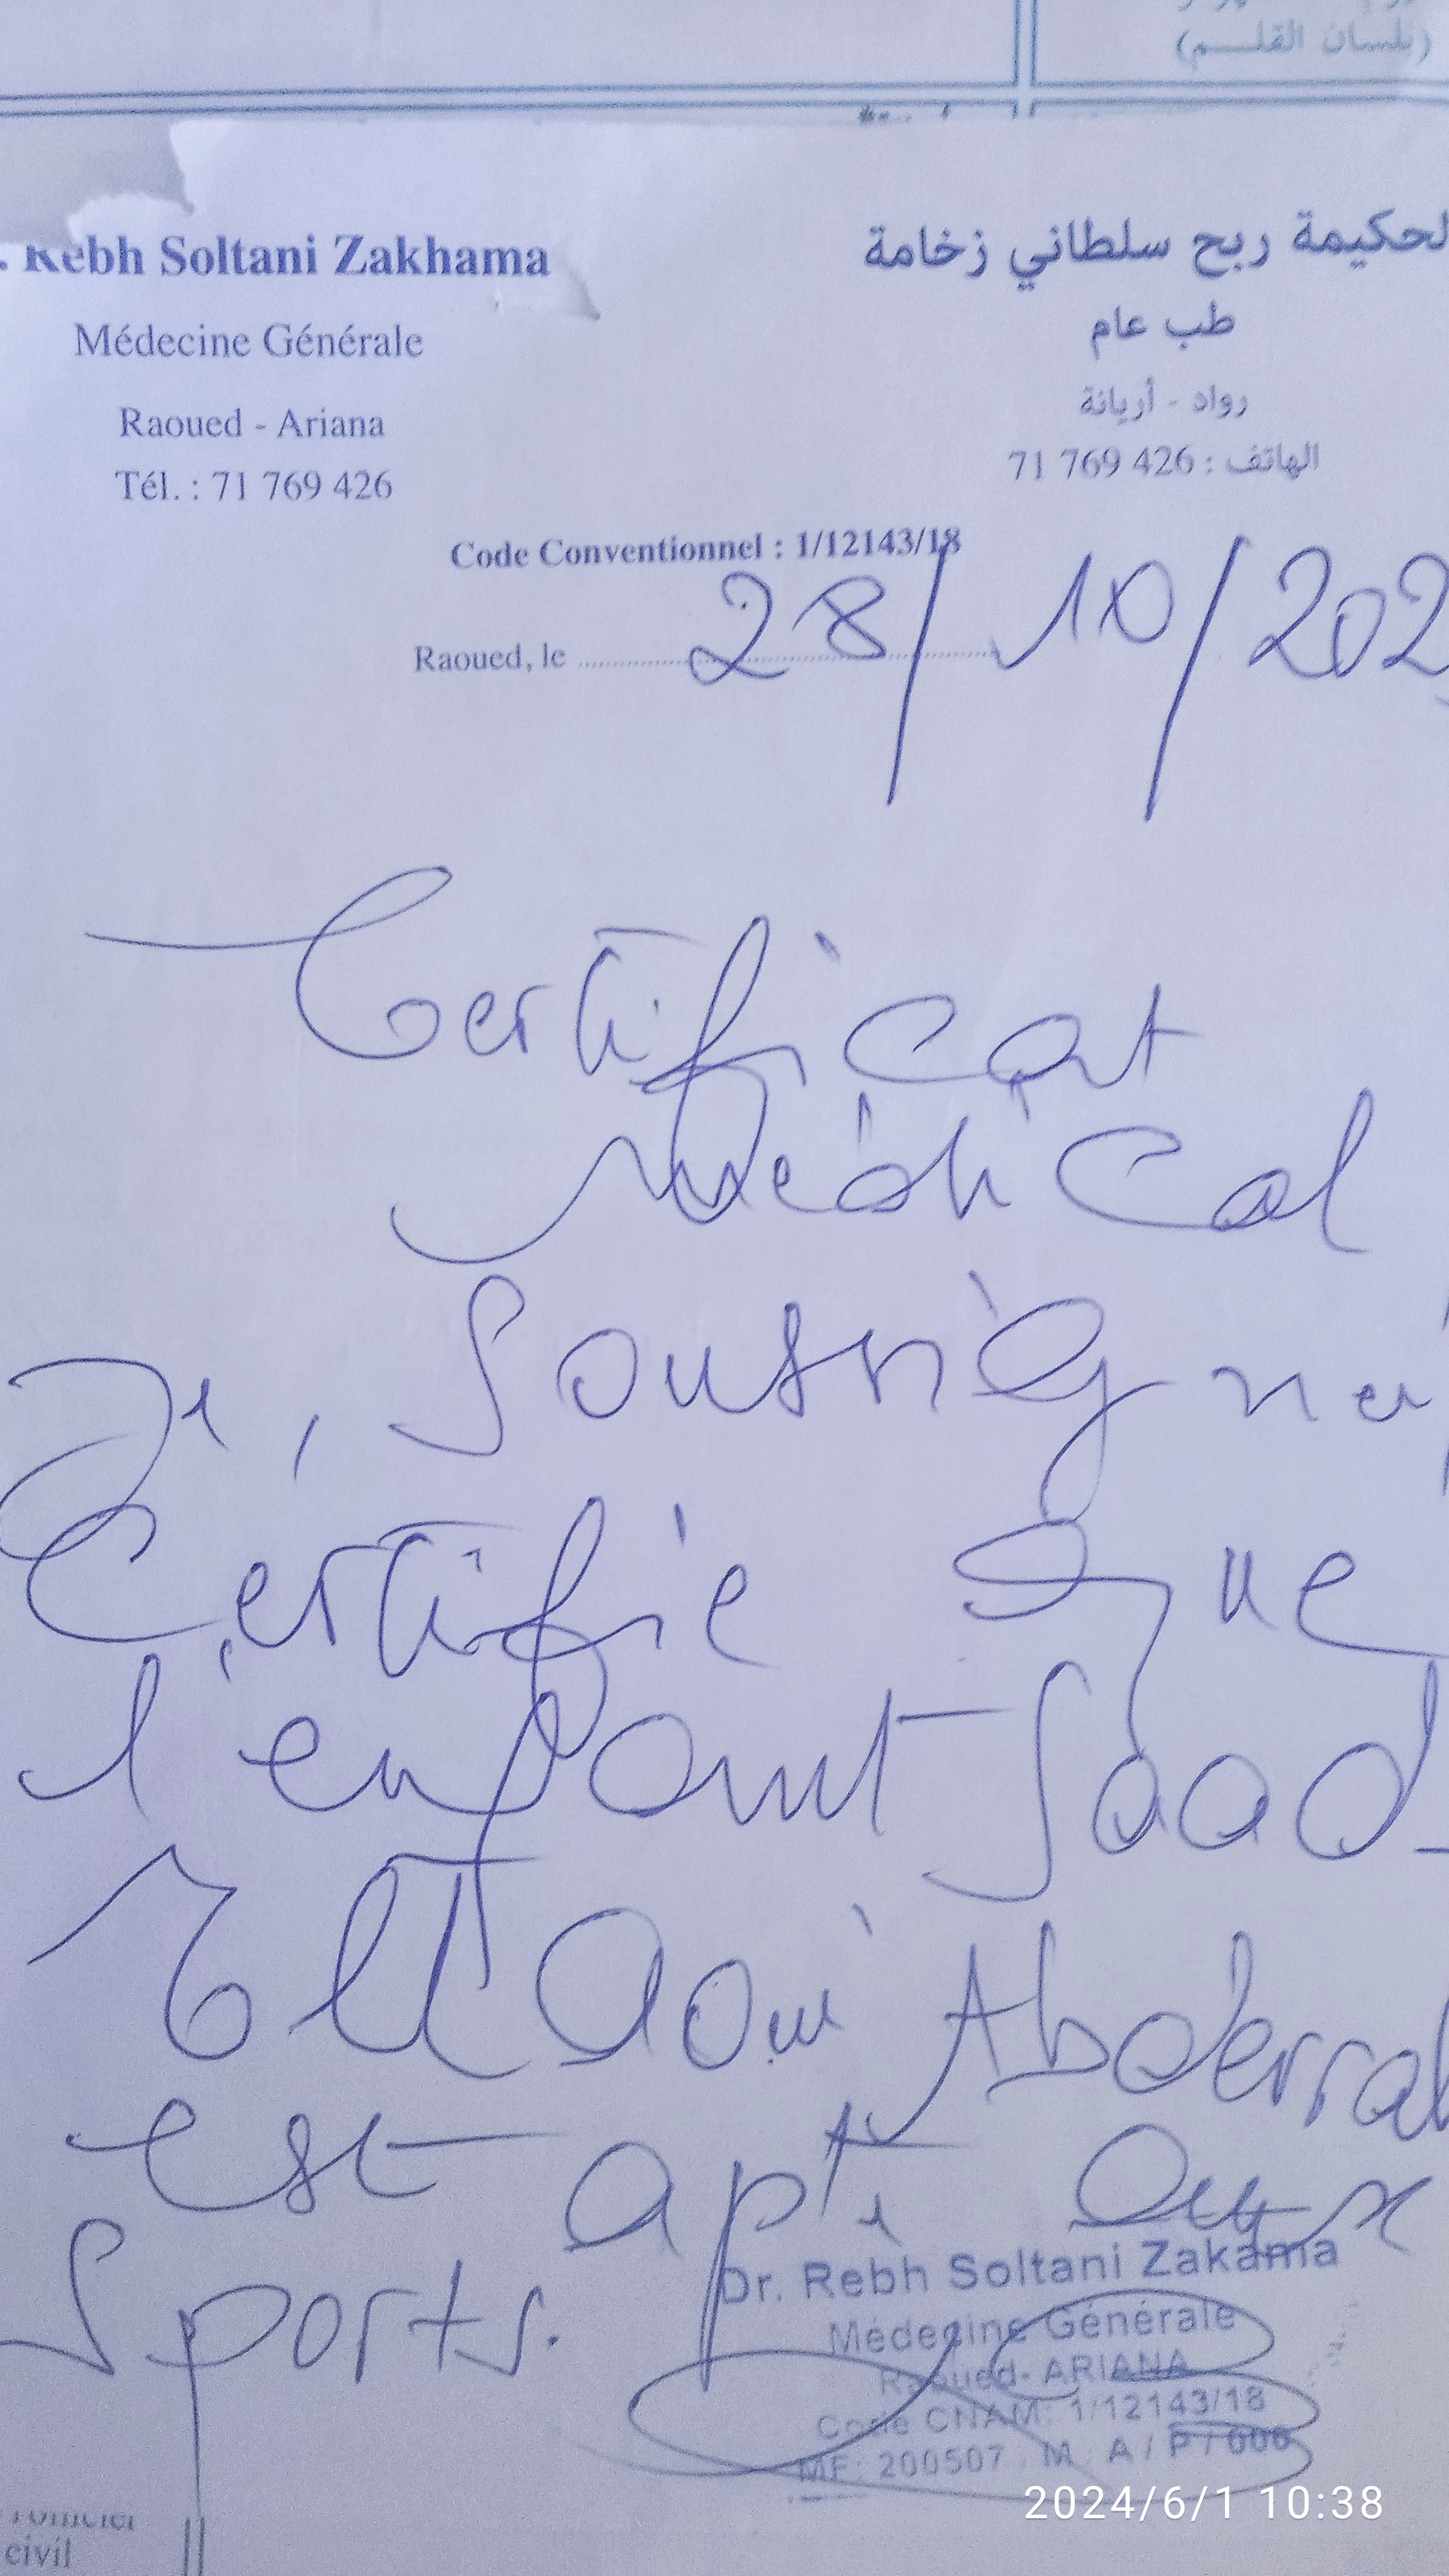 (بلسان القلـــم)
Rebh Soltani Zakhama
لحكيمة ربح سلطاني زخامة
Médecine Générale
طب عام
Raoued - Ariana
رواد - أريانة
Tél. : 71 769 426
الهاتف : 426 769 71
Code Conventionnel : 1/12143/18
Raoued, le 28/10/202
Certificat
Médical
Je, Soussigné,
Certifie que
l'enfant Saad
Eltaoui Abderrah
est apte aux
Sports.
Dr. Rebh Soltani Zakama
Médecine Générale
Raoued- ARIANA
Code CNAM: 1/12143/18
MF: 200507 . M A / P / 000
civil
2024/6/1 10:38